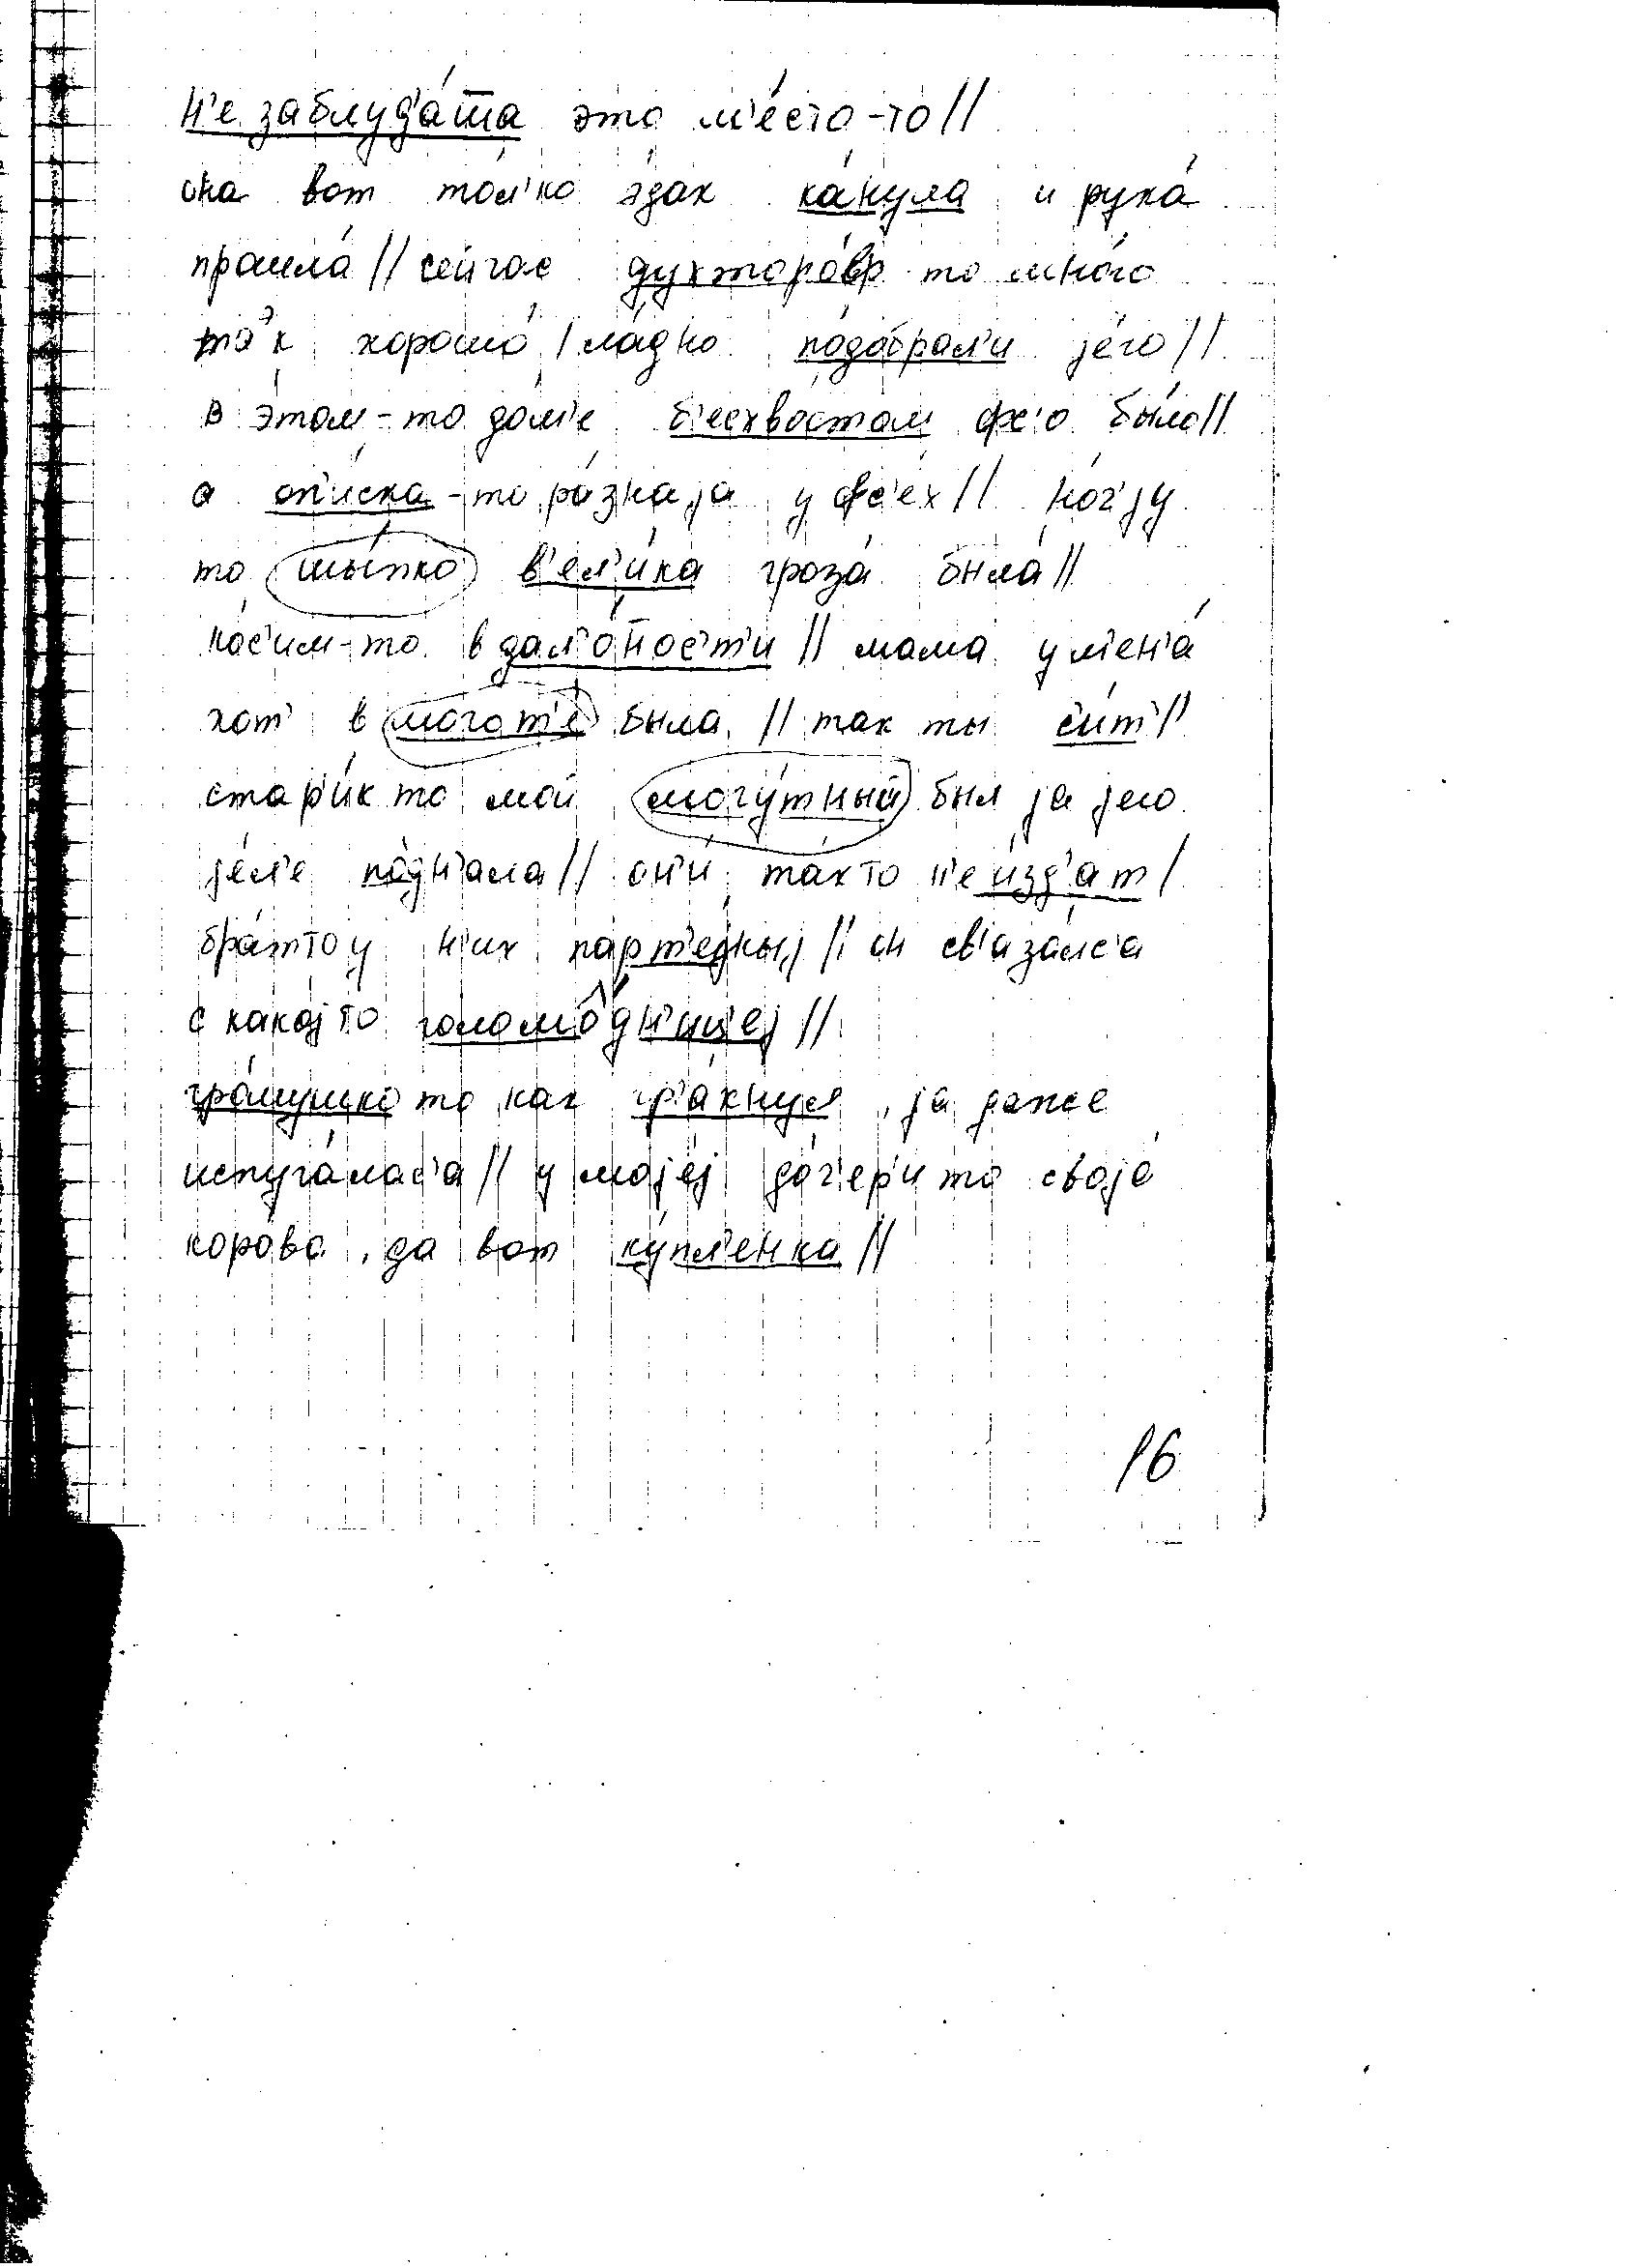 н'е заблуд'а́та это м'е́сто-то //
она вот то́л'ко э́дак ка́нула и рука́
прашла́ // сейчас духтаро́ф то мно́го
так хорошо́ / ла́дно подобрал'и jего́ //
в э́том-то до́м'е б'есхвостом фс'о бы́ло //
а оп'и́ска-то ра́знаjа у фс'е́х // но́ч'jу
то шы́пко в'ел'и́ка гроза́ была́ //
ко́с'им-то в дал'о́ност'и // мама у м'ен'а́
хот' в могот'е́ была // так ты с'ит' //
стар'и́к то мой могу́тный был jа jего
jе́л'е подн'ала // он'и́ та́кто н'е и́зд'ат /
бра́тто у н'их парт'е́jныj // он св'аза́лс'а
с какоjто голомо̂дн'ицеj //
гра́мушко то как гр'а́кнул jа даже
испуга́лас'а // у моjе́j до́ч'ер'и то своjа́
коро́ва да вот ку́пл'енка //
16